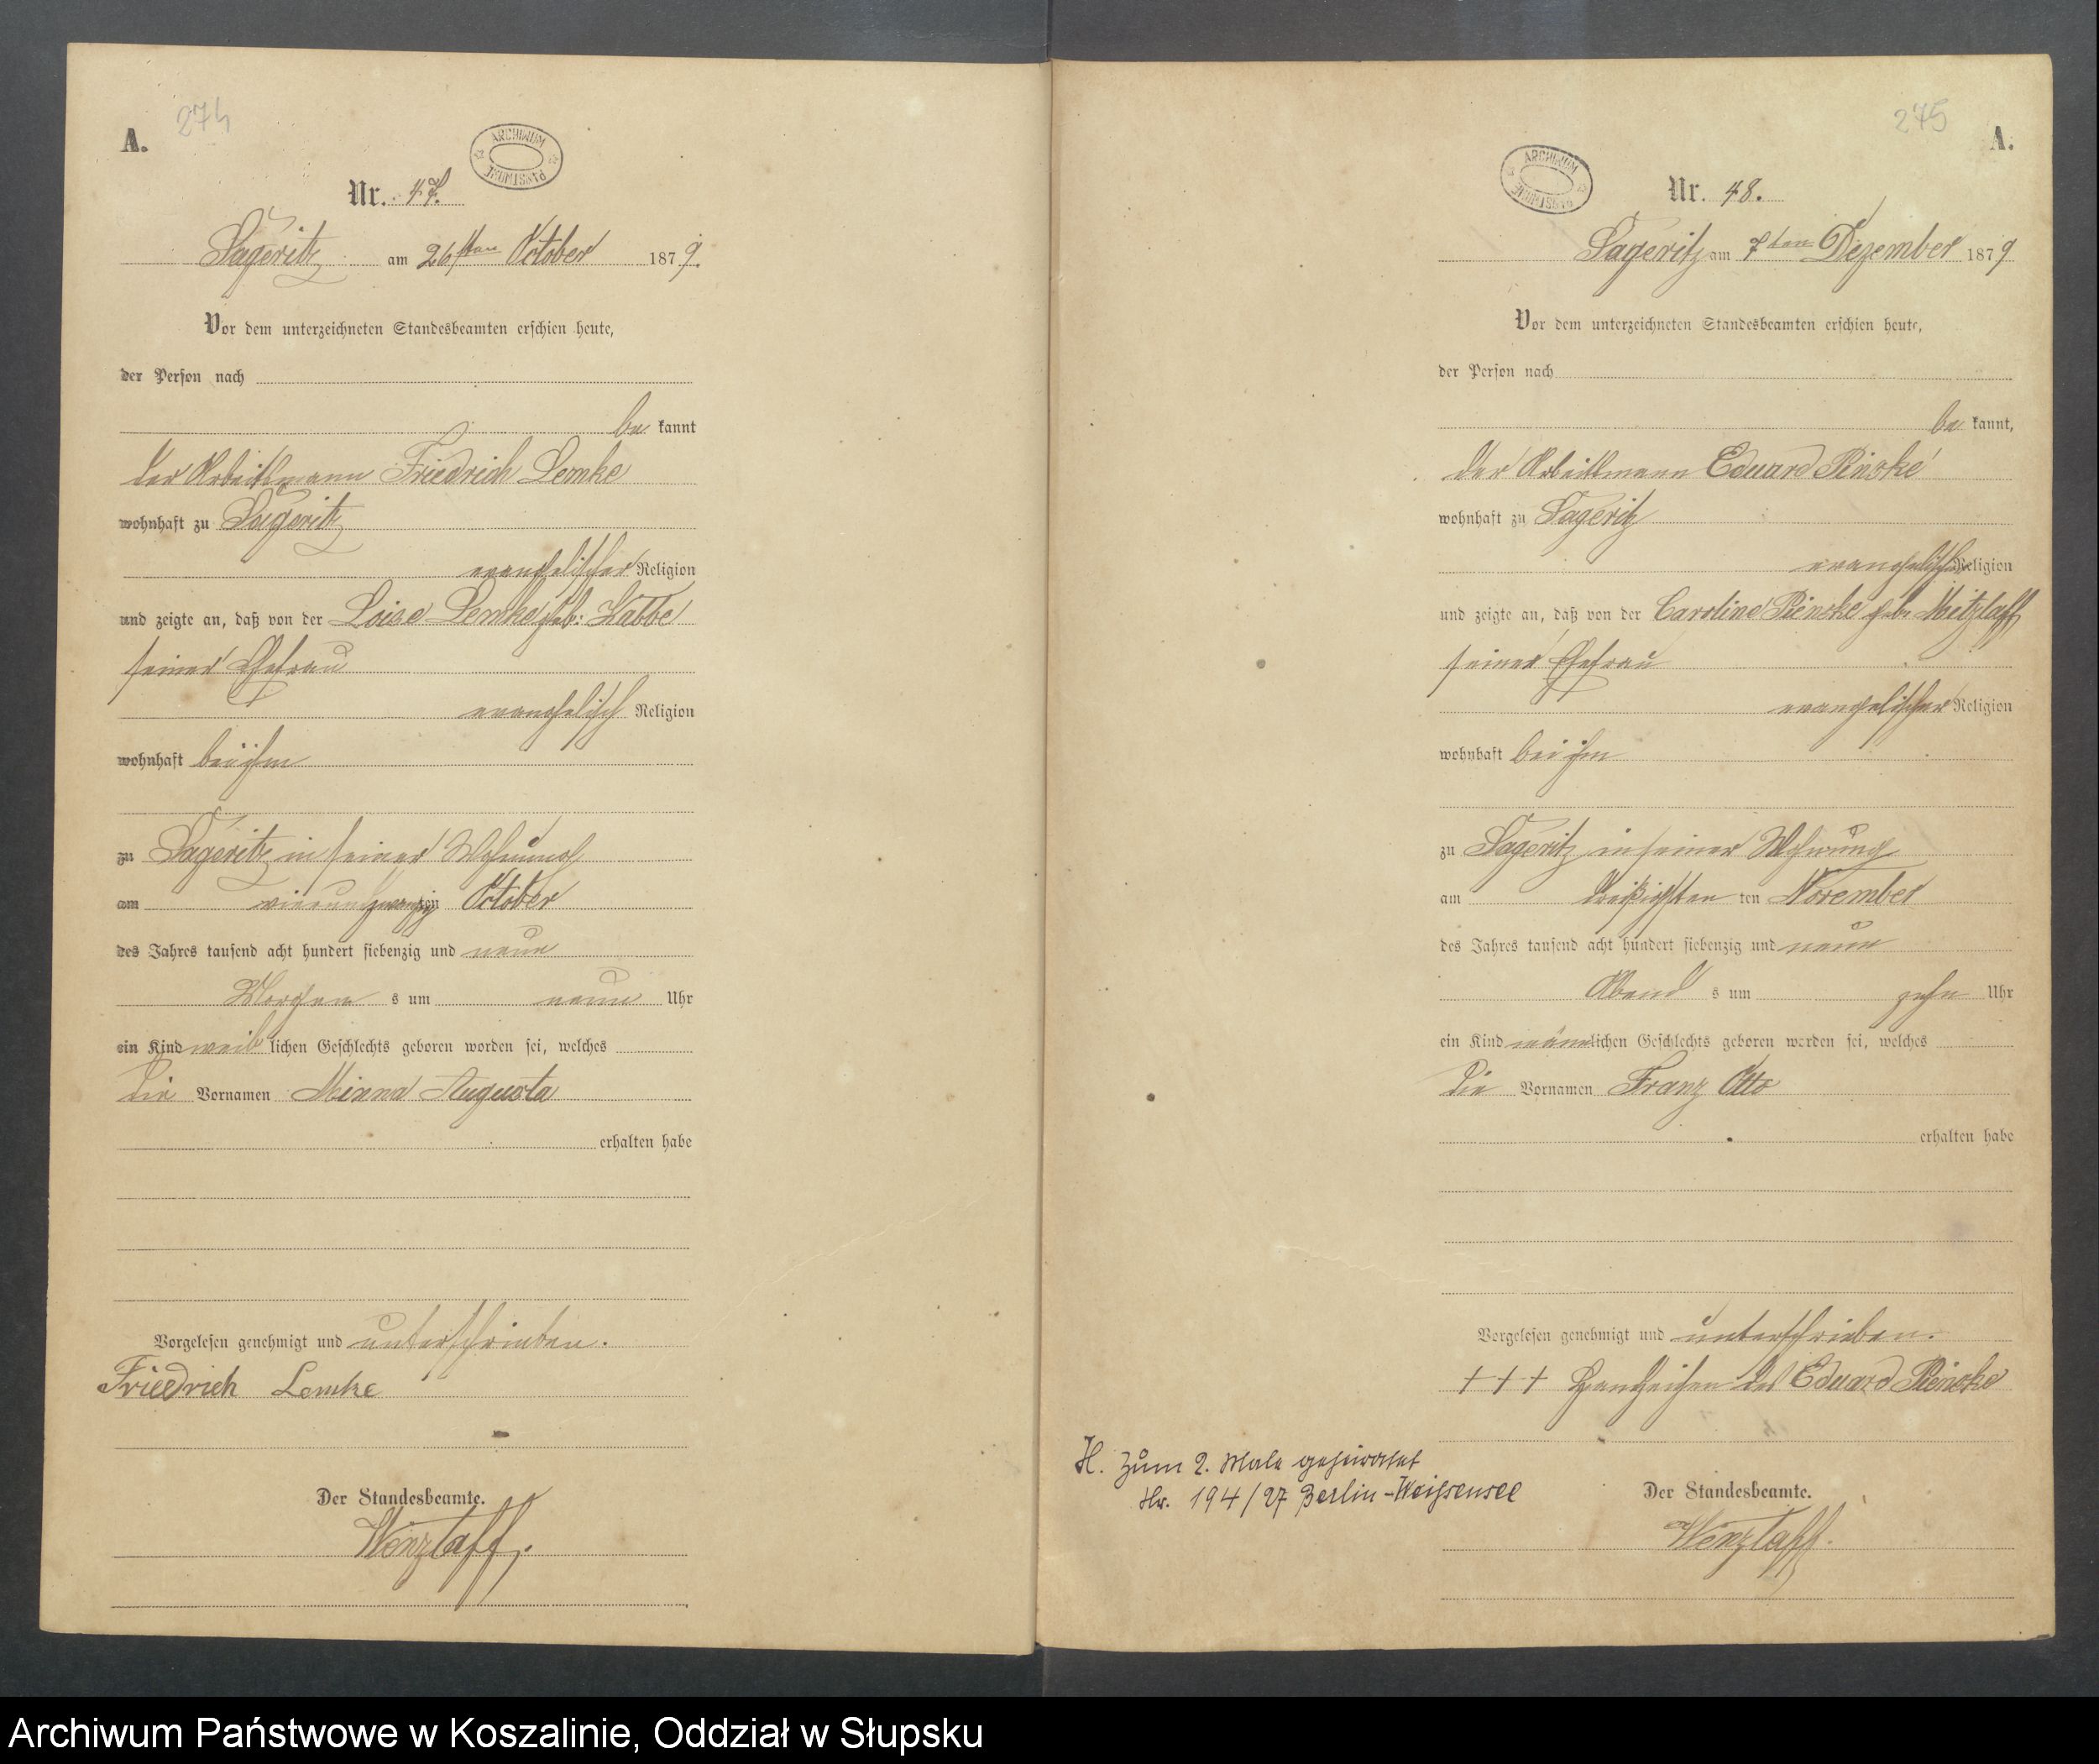 274
A.
ARCHIWUM PAŃSTWOWE
Nr. 47.
Sageritz am 26sten October 1879.
Vor dem unterzeichneten Standesbeamten erschien heute,
der Person nach
be kannt
der Arbeitsmann Friedrich Lemke
wohnhaft zu Sageritz
evangelischer Religion
und zeigte an, daß von der Loise Lemke geb: Kabbe
seiner Ehefrau
evangelisch Religion
wohnhaft bei ihm
zu Sageritz in seiner Wohnung
am vierundzwanzig ten October
des Jahres tausend acht hundert siebenzig und neun
Morgen s um neun Uhr
ein Kind weib lichen Geschlechts geboren worden sei, welches
die Vornamen Minna Augusta
erhalten habe
Vorgelesen genehmigt und unterschrieben.
Friedrich Lemke
Der Standesbeamte.
Wenzlaff.
275
A.
ARCHIWUM PAŃSTWOWE
Nr. 48.
Sageritz am 7ten Dezember 1879
Vor dem unterzeichneten Standesbeamten erschien heute,
der Person nach
be kannt,
der Arbeitsmann Eduard Pinske
wohnhaft zu Sageritz
evangelischer Religion
und zeigte an, daß von der Caroline Pienske geb. Mitzlaff
seiner Ehefrau
evangelischer Religion
wohnhaft bei ihm
zu Sageritz in seiner Wohnung
am dreißigsten ten November
des Jahres tausend acht hundert siebenzig und neun
Abend s um zehn Uhr
ein Kind männlichen Geschlechts geboren worden sei, welches
die Vornamen Franz Otto
erhalten habe
Vorgelesen genehmigt und unterschrieben.
+++ Handzeichen des Eduard Pienske
H. Zum 2. Male geheiratet
Nr. 194/27 Berlin-Weißensee
Der Standesbeamte.
Wenzlaff.
Archiwum Państwowe w Koszalinie, Oddział w Słupsku